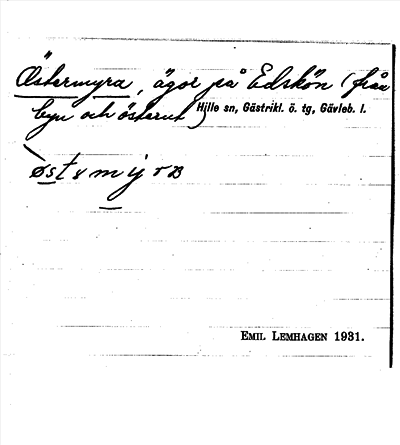 Östermyra, ägor på Edskön (från
byn och österut) Hille sn, Gästrikl. ö. tg, Gävleb. l.
EMIL LEMHAGEN 1931.